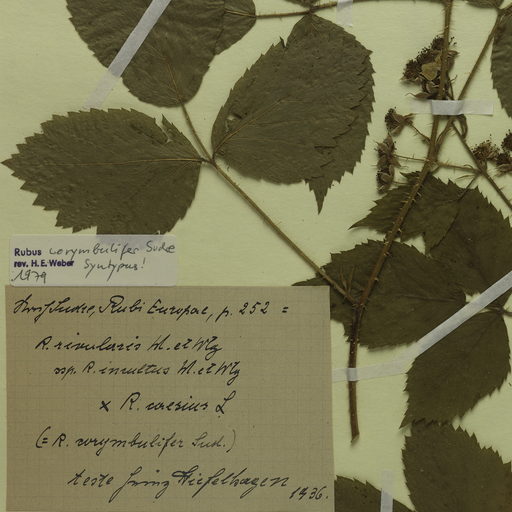 Rubus corymbulifer Sudre
rev. H. E. Weber Syntypus!
1979
Sudre, Rubi Europae, p. 252 =
R. rivularis M. et Wg
ssp. R. incultus M. et Wg
x R. caesius L
(= R. corymbulifer Sud.)
teste
1936.